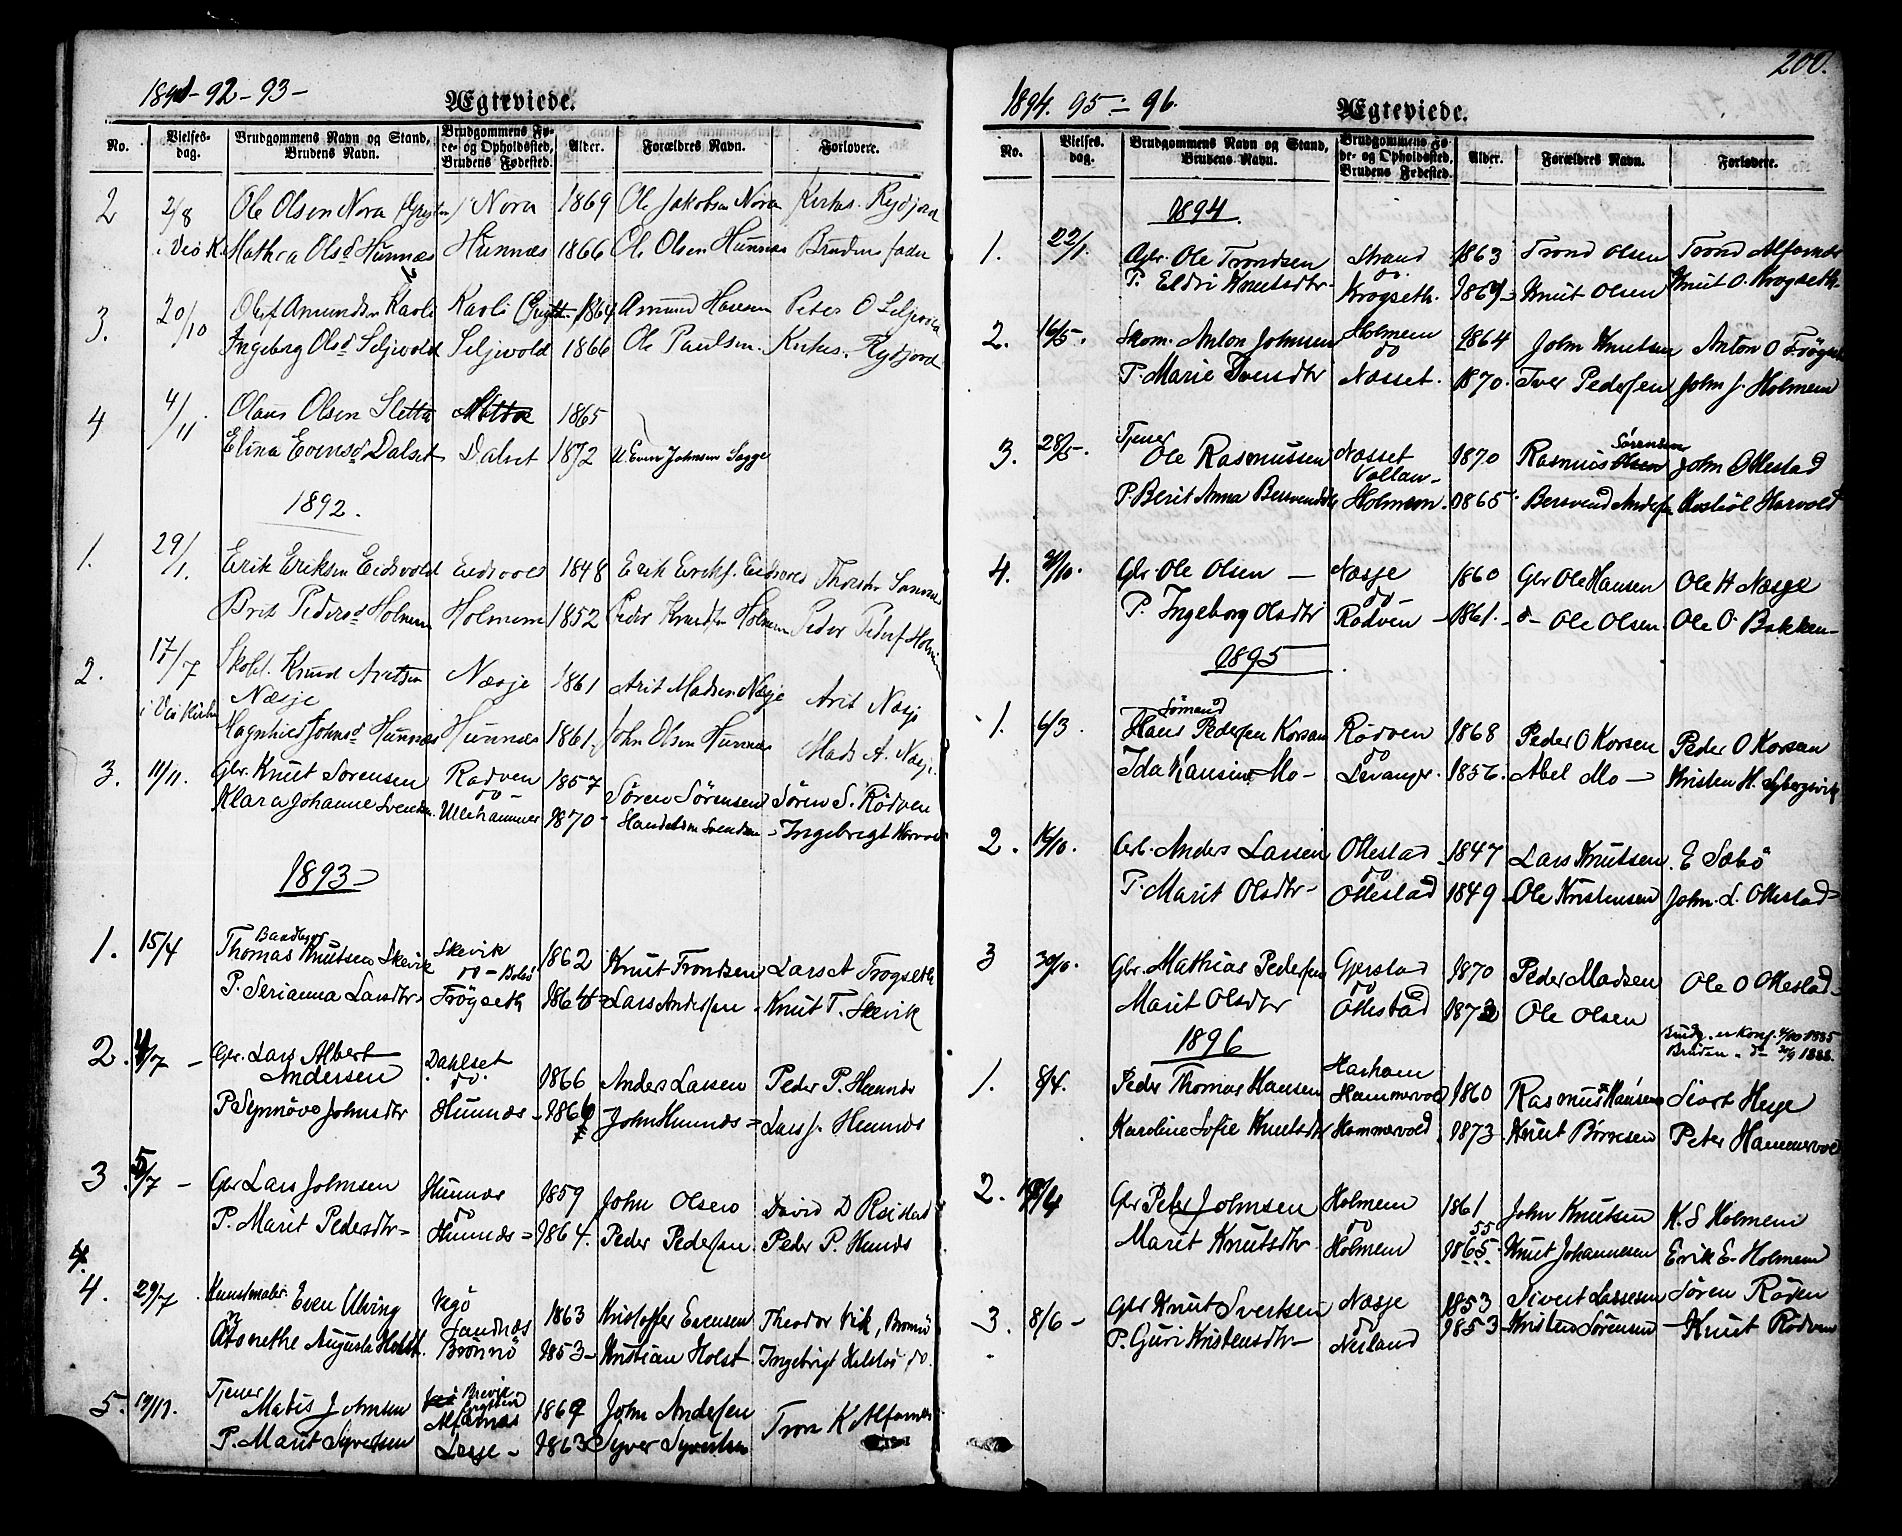 1891-92-93-
Ægteviede.
No.
Vielses-
dag.
Brudgommens Navn og Stand,
Brudens Navn.
Brudgommens Fø-
de- og Opholdssted,
Brudens Fødested.
Alder.
Forældres Navn.
Forlovere.
2 2/8 Ole Olsen Nora Nora 1869 Ole Jakobsen Nora Kirkes. Rydjord
Olsd Hunnæs Hunnæs 1866 Ole Olsen Hunnæs Brudens fader
3. 20/10 Amundsen Kavli Kavli 1864 Amund Hansen Peter O Seljevold
Ingeborg Olsd Seljevold Seljevold 1866 Ole Paulsen. Kirkes. Rydjord
4 4/11 Olaus Olsen Sletta 1865
Elina Evensd Dalset Dalset 1872 U. Even Johnsen Sogge
1892.
1. 29/1 Erik Eriksen Eidsvold Eidsvold 1848 Erik Eriks. Eidsvold
Brit Pedersd Holmem Holmem 1852 Peder Knudsen Holmem Peder Peders Holmem
2. 17/7 Knud Aritsen Næsje 1861 Arit Madsen Næsje Arit Næsje
i Veø Kirke Næsje
Magnhild Johnsd Hunnæs Hunnæs 1861 John Olsen Hunnæs Mads A. Næsje.
3. 11/11. Gbr. Knut Sørensen Rødven 1857 Søren Sørensen Søren S. Rødven
do -
Klara Johanne Svendsen. 1870 - Svendsen - Ingebrigt
1893 -
1. 15/4 Thomas Knutsen Skevik Skevik 1862 Knut Trondsen Lars A Frøgseth
P. Serianna Larsdtr - Frøgseth 1864 Lars Andersen - Knut T. Skevik
2. 4/7 - Gbr. Lars Albert Dahlset
Andersen do 1866 Anders Larsen Peder P. Hunnæs
P Synnøve Johnsdtr Hunnæs - 1866 John Hunnæs = Lars J. Hunnæs
3 5/7 - Gbr Lars Johnsen Hunnæs 1859 John Olsen David D
do
P. Marit Pedersdtr - Hunnæs = 1864. Peder Pedersen Peder P. Hunnæs
4.
4. 29/7 Kunstmaler Even Ulving Vegø 1863 Kristoffer Evensen Theodor Vik, Brønnø
Augusta Holst. Brønnø 1853 - Kristian Holst. Ingebrigt do.
5. Tjener Matis Johnsen Alfarnæs 1869 John Andersen Tron K Alfarnæs
P. Marit Syversen Lesje - 1863 Syver Syvertsen
200.
1894. 95 - 96.
Ægteviede.
No.
Vielses-
dag.
Brudgommens Navn og Stand,
Brudens Navn.
Brudgommens Fø-
de- og Opholdssted,
Brudens Fødested.
Alder.
Forældres Navn.
Forlovere.
1894.
1. 22/1. Ole Trondsen Strand 1863 Trond Olsen Trond Alfarnæs
do.
P. Eldri Knutsdtr - Krogseth. 1864 - Knut Olsen Knut O. Krogseth
2. 16/5 -. Skom. Anton Johnsen Holmem 1864 John Knutsen Anton O
do
P. Marie Iversdtr Næsset. 1870. Iver Pedersen John J. Holmem
3. 28/5 -. Tjener Sørensen
Ole Rasmussen Næsset 1870 Rasmus Olsen John Ottestad
P. Berit Anna Holmem. 1865 Harvold
4. Gbr. Ole Olsen - Næsje 1860 Gbr Ole Hansen Ole H Næsje
do -
P. Ingeborg Olsdtr Rødven - 1861. - do - Ole Olsen Ole O. Bakken -
1895
1. 6/3. Sømand
Hans Pedersen Korsan Rødven 1868 Peder O Korsen Peder O Korsan
do
Ida Hansine Mo - Levanger. 1856. Abel Mo - Kristen H.
2. 16/10. Anders Larsen Ottestad 1847 Lars Knutsen E Sæbø
do
P. Marit Olsdtr - Ottestad 1849 - Ole Kristensen John. L. Ottestad -
3 30/10. Gbr. Mathias Pedersen Gjerstad 1870 Peder Madsen Ole O Ottestad -
do
Marit Olsdtr Ottestad 1873 Ole Olsen
1896 Brudg. er konf. 4/10 1885
Bruden - do 30/9 1888.
1. 8/4. Peder Thomas Hansen Hammervold 1860 Rasmus Hansen
Karoline Sofie Knutsdtr Hammervold. 1873. Knut Peter Hammervold
2. Gbr Peter Johnsen Holmem 1861 John Knutsen K. S Holmem
do 55
Marit Knutsdtr Holmem 1865. Knut Johannesen Erik E. Holmem
3. 8/6 - Gbr Knut Sivertsen Næsje 1853 Sivert Lassesen Søren Rødven
do
P. Guri Kristensdtr - Neiland 1853 - Kristen Sørensen - Knut Rødven